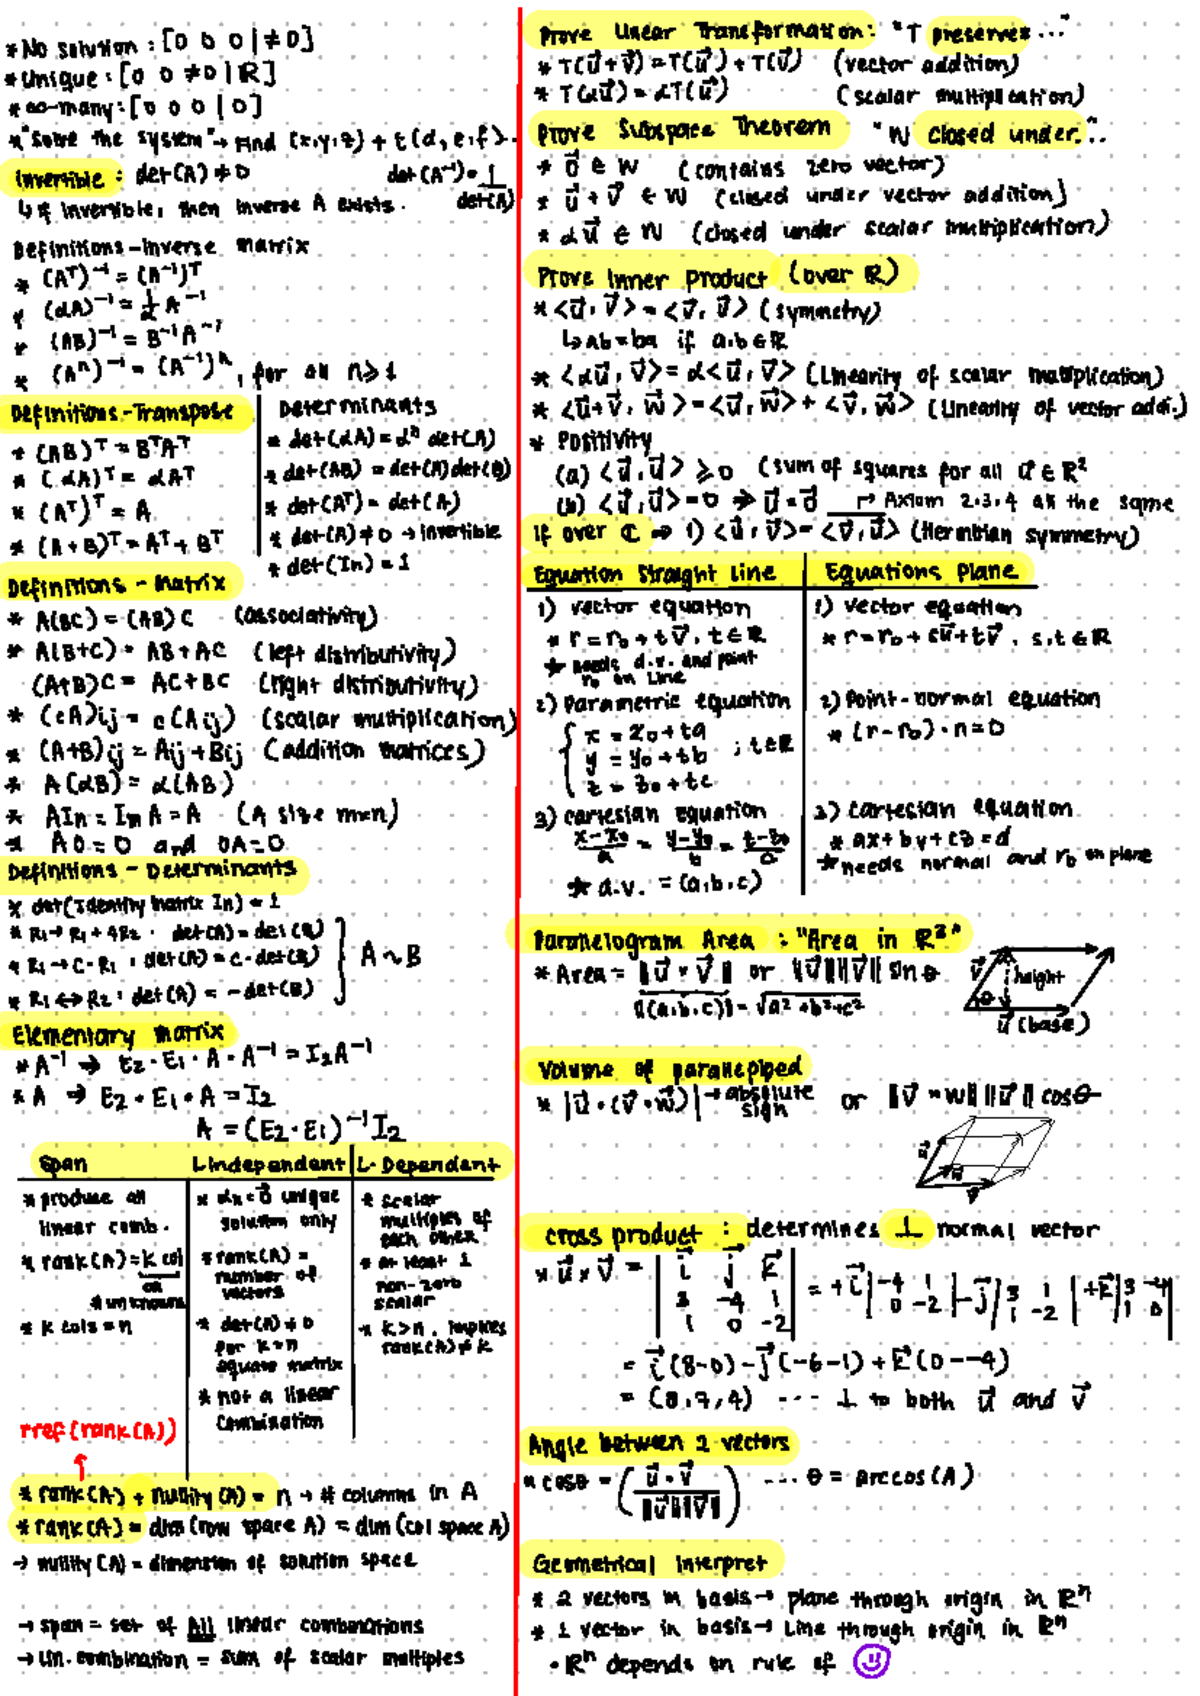 * No solution : [0 0 0 | ≠ 0]
* Unique : [0 0 ≠0 | ℝ]
* ∞-many : [0 0 0 | 0]
* "Solve the system" → Find (x,y,z) + t(d, e, f).
Invertible : det(A) ≠ 0 det(A⁻¹) = 1/det(A)
↳ if invertible, then inverse A exists.
Definitions - Inverse matrix
* (Aᵀ)⁻¹ = (A⁻¹)ᵀ
* (αA)⁻¹ = 1/α A⁻¹
* (AB)⁻¹ = B⁻¹A⁻¹
* (Aⁿ)⁻¹ = (A⁻¹)ⁿ, for all n ≥ 1
Definitions - Transpose
* (AB)ᵀ = BᵀAᵀ
* (αA)ᵀ = αAᵀ
* (Aᵀ)ᵀ = A
* (A+B)ᵀ = Aᵀ + Bᵀ
Determinants
* det(αA) = αⁿ det(A)
* det(AB) = det(A)det(B)
* det(Aᵀ) = det(A)
* det(A) ≠ 0 → invertible
* det(In) = 1
Definitions - Matrix
* A(BC) = (AB)C (associativity)
* A(B+C) = AB + AC (left distributivity)
(A+B)C = AC+BC (right distributivity)
* (cA)ij = c(Aij) (scalar multiplication)
* (A+B)ij = Aij + Bij (addition matrices)
* A(αB) = α(AB)
* AIn = Im A = A (A size m×n)
* A0 = 0 and 0A = 0
Definitions - Determinants
* det(Identity matrix In) = 1
* R1 → R1 + 4R2 . det(A) = det(B)
* R1 → C·R1 : det(A) = c·det(B)
* R1 ↔ R2 : det(A) = -det(B)
A ~ B
Elementary matrix
* A⁻¹ ⇒ E2·E1·A·A⁻¹ = I2A⁻¹
* A ⇒ E2·E1·A = I2
A = (E2·E1)⁻¹I2
Span
* produce all
linear comb.
* rank(A) = k col
OR
# unknowns
* k cols = n
L.Independent
* αx = 0⃗ unique
solution only
* rank(A) =
number of
vectors
* det(A) ≠ 0
for k=n
square matrix
* not a linear
combination
L-Dependent
* scalar
multiples of
each other
* at least 1
non-zero
scalar
* k>n, implies
rank(A) ≠ k
rref(rank(A))
* rank(A) + nullity(A) = n → # columns in A
* rank(A) = dim(row space A) = dim(col space A)
→ nullity(A) = dimension of solution space
→ span = set of All linear combinations
→ Lin. combination = sum of scalar multiples
Prove Linear Transformation : "T preserves..."
* T(u⃗+v⃗) = T(u⃗) + T(v⃗) (vector addition)
* T(αu⃗) = αT(u⃗) (scalar multiplication)
Prove Subspace Theorem "W closed under..."
* 0⃗ ∈ W (contains zero vector)
* u⃗ + v⃗ ∈ W (closed under vector addition)
* αu⃗ ∈ W (closed under scalar multiplication)
Prove Inner Product (over ℝ)
* <u⃗, v⃗> = <v⃗, u⃗> (symmetry)
↳ ab = ba if a,b ∈ ℝ
* <αu⃗, v⃗> = α<u⃗, v⃗> (Linearity of scalar multiplication)
* <u⃗+v⃗, w⃗> = <u⃗, w⃗> + <v⃗, w⃗> (Linearity of vector addi.)
* Positivity
(a) <u⃗, u⃗> ≥ 0 (sum of squares for all u⃗ ∈ ℝ²
(b) <u⃗, u⃗> = 0 ⇒ u⃗ = 0⃗ ↱ Axiom 2.3.4 all the same
If over ℂ ⇒ 1) <u⃗, v⃗> = <v⃗, u⃗> (Hermitian symmetry)
Equation Straight line
1) vector equation
* r = r0 + tv⃗, t ∈ ℝ
* needs d.v. and point
r0 on Line
2) parametric equation
x = x0 + ta
y = y0 + tb ; t∈ℝ
z = z0 + tc
3) cartesian equation
(x-x0)/a = (y-y0)/b = (z-z0)/c
* d.v. = (a,b,c)
Equations Plane
1) vector equation
* r = r0 + su⃗ + tv⃗, s,t ∈ ℝ
2) Point-normal equation
* (r-r0)·n = 0
3) cartesian equation
* ax + by + cz = d
* needs normal and r0 on plane
Parallelogram Area : "Area in ℝ³"
* Area = ‖u⃗ × v⃗‖ or ‖u⃗‖‖v⃗‖ sin θ
‖(a,b,c)‖ = √a²+b²+c²
v⃗
height
θ
u⃗ (base)
Volume of parallepiped
* |u⃗·(v⃗×w⃗)| → absolute or ‖v⃗×w‖‖u⃗‖ cosθ
sign
u⃗
w⃗
v⃗
cross product : determines ⊥ normal vector
* u⃗ × v⃗ = | i⃗ j⃗ k⃗ | = +i⃗ |-4 1| - j⃗ |3 1| + k⃗ |3 -4|
| 3 -4 1 | |0 -2| |1 -2| |1 0|
| 1 0 -2 |
= i⃗(8-0) - j⃗(-6-1) + k⃗(0--4)
= (8,7,4) --- ⊥ to both u⃗ and v⃗
Angle between 2 vectors
* cosθ = (u⃗·v⃗ / ‖u⃗‖‖v⃗‖) ... θ = arccos(A)
Geometrical Interpret
* 2 vectors in basis → plane through origin in ℝⁿ
* 1 vector in basis → Line through origin in ℝⁿ
• ℝⁿ depends on rule of ☺